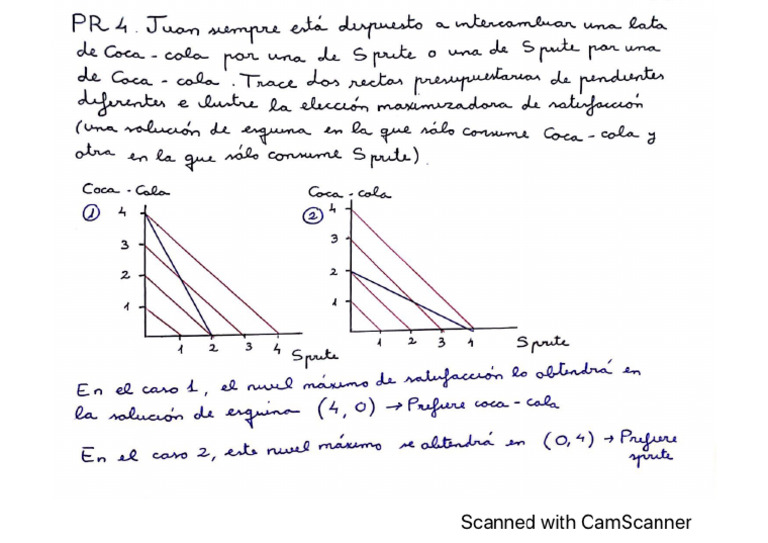 PR 4. Juan siempre está dispuesto a intercambiar una lata
de Coca-cola por una de Sprite o una de Sprite por una
de Coca-cola. Trace dos rectas presupuestarias de pendientes
diferentes e ilustre la elección maximizadora de satisfacción
(una solución de esquina en la que sólo consume Coca-cola y
otra en la que sólo consume Sprite).
Coca-Cola
① 4
3
2
1
1 2 3 4
Sprite
Coca-cola
② 4
3
2
1
1 2 3 4
Sprite
En el caso 1, el nivel máximo de satisfacción lo obtendrá en
la solución de esquina (4,0) → Prefiere coca-cola
En el caso 2, este nivel máximo se obtendrá en (0,4) → Prefiere
sprite
Scanned with CamScanner